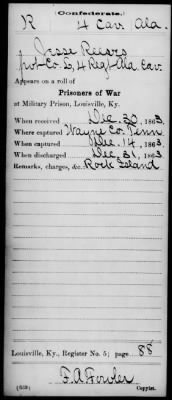 (Confederate.)
R 4 Cav. Ala.
Jesse Reeves
pvt Co. D, 4 Reg't Ala. Cav.
Appears on a roll of
Prisoners of War
at Military Prison, Louisville, Ky.
When received Dec. 30, 1863
Where captured Wayne Co. Tenn
When captured Dec. 14, 1863
When discharged Dec. 31, 1863
Remarks, charges, &c. Rock Island
Louisville, Ky., Register No. 5; page 88
F. A. Fowler
Copyist.